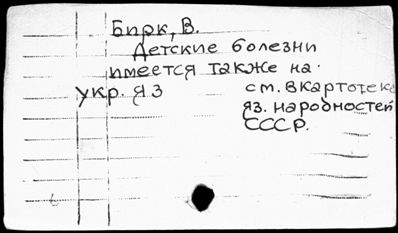 Бирк, В.
Детские болезни
имеется также на
укр. яз см. в картотеке
яз. народностей
СССР.